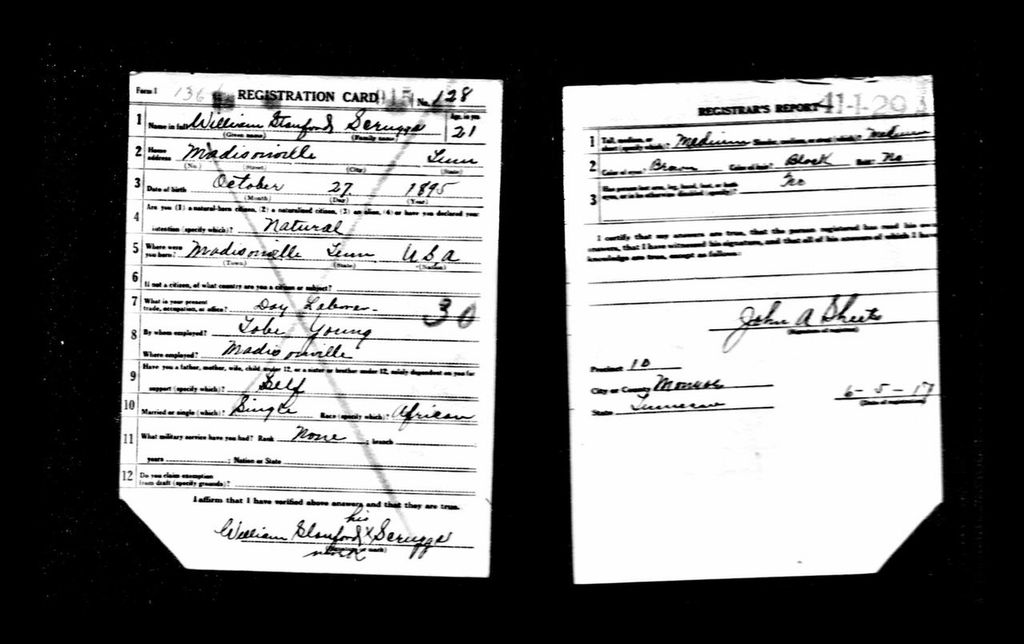 Form 1 REGISTRATION CARD No. 128
1 Name in full William Stanford Scruggs Age, in yrs 21
(Given name) (Family name)
2 Home address Madisonville Tenn
(No.) (Street) (City) (State)
3 Date of birth October 27 1895
(Month) (Day) (Year)
4 Are you (1) a natural-born citizen, (2) a naturalized citizen, (3) an alien, (4) or have you declared your
intention (specify which)? Natural
5 Where were you born? Madisonville Tenn U.S.A
(Town) (State) (Nation)
6 If not a citizen, of what country are you a citizen or subject?
7 What is your present trade, occupation, or office? Day Laborer 30
8 By whom employed? Tobe Young
Where employed? Madisonville
9 Have you a father, mother, wife, child under 12, or a sister or brother under 12, solely dependent on you for
support (specify which)? Self
10 Married or single (which)? Single Race (specify which)? African
11 What military service have you had? Rank None ; branch
years ; Nation or State
12 Do you claim exemption from draft (specify grounds)?
I affirm that I have verified above answers and that they are true.
his
William Stanford X Scruggs
mark
(Signature or mark)
REGISTRAR'S REPORT 41-1-20 A
1 Tall, medium, or short (specify which)? Medium Slender, medium, or stout (which)? Medium
2 Color of eyes? Brown Color of hair? Black Bald? No
3 Has person lost arm, leg, hand, foot, or both eyes, or is he otherwise disabled (specify)? No
I certify that my answers are true, that the person registered has read his own
answers, that I have witnessed his signature, and that all of his answers of which I have
knowledge are true, except as follows:
John A Sheets
(Signature of registrar)
Precinct 10
City or County Monroe
State Tennessee
6-5-17
(Date of registration)